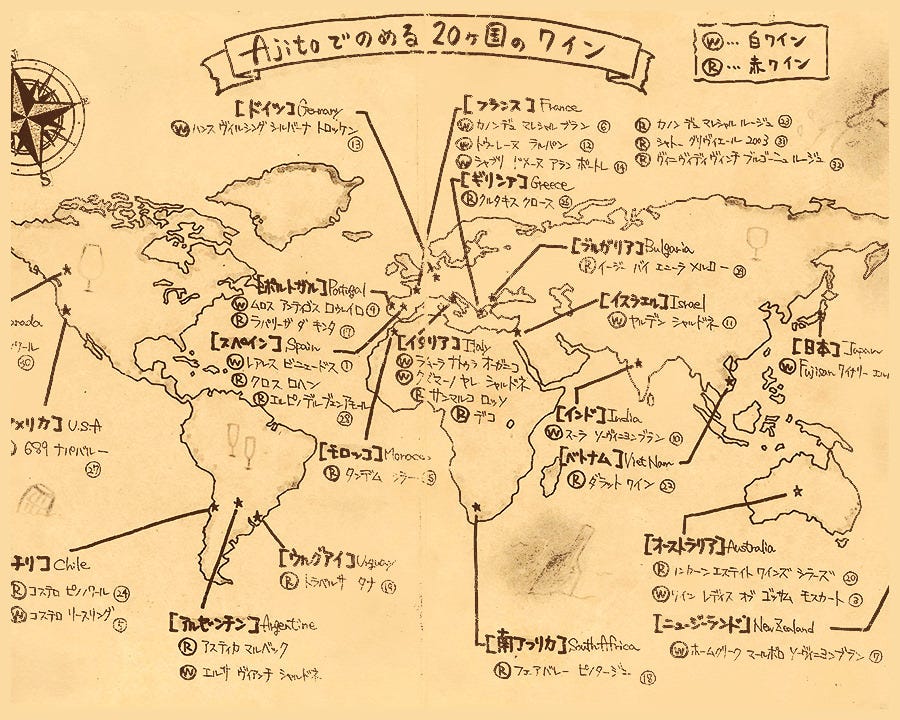 Ajitoでのめる 20ヶ国の ワイン
Ⓦ… 白ワイン
Ⓡ… 赤ワイン
S
[ドイツ] Germany
Ⓦ ハンス ヴィルシング シルバーナ トロッケン
⑬
[フランス] France
Ⓦ カノン デュ マレシャル ブラン ⑥
Ⓦ トゥーレーヌ ラルパン ⑫
Ⓦ シャブリ ドメーヌ アラン ⑭
Ⓡ カノン デュ マレシャル ルージュ ㉓
Ⓡ シャトー グリヴィエール 2003 ㉛
Ⓡ ヴィーニ ヴィディ ヴィンチ ブルゴーニュ ルージュ ㉜
[ギリシア] Greece
Ⓡ クルタキス クロース
[ブルガリア] Bulgaria
Ⓡ イージー バイ エニーラ メルロー
[ポルトガル] Portugal
Ⓦ ムロス アンティゴス ロウレイロ ⑨
Ⓡ ラバリーザ ダ キンタ ⑰
[イスラエル] Israel
Ⓦ ヤルデン シャルドネ ⑪
[スペイン] Spain
Ⓦ レアレス ビニェードス ①
Ⓡ クロス ロヘン
Ⓡ エルピ デル ブエン アモール
㉘
[イタリア] Italy
Ⓦ オーガニコ
Ⓦ クズマーノ シャルドネ
Ⓡ サンマルコ ロッソ
Ⓡ デコ
[日本] Japan
Ⓦ Fujisan ワイナリー
[インド] India
Ⓦ スーラ ソーヴィニヨンブラン ⑩
[ベトナム] VietNam
Ⓡ ダラット ワイン ㉒
メリカ] U.S.A
689 ナパバレー
㉗
㉚
[モロッコ] Morocco
Ⓡ タンデム シラー
チリ] Chile
Ⓡ コステロ ピノノワール ㉔
Ⓦ コステロ リースリング ⑤
[ウルグアイ] Uruguay
Ⓡ トラバルサ タナ ⑲
[アルゼンチン] Argentine
Ⓡ アスティカ マルベック
Ⓦ エルサ ヴィアンチ シャルドネ
[南アフリカ] SouthAfrica
Ⓡ フェアバレー ピノタージュ ⑱
[オーストラリア] Australia
Ⓡ ハンターン エステイト ワインズ シラーズ ⑳
Ⓦ ワイン レディス オブ ゴッサム モスカート ③
[ニュージーランド] NewZealand
Ⓦ ホームクリーク マールボロ ソーヴィニヨンブラン ⑦